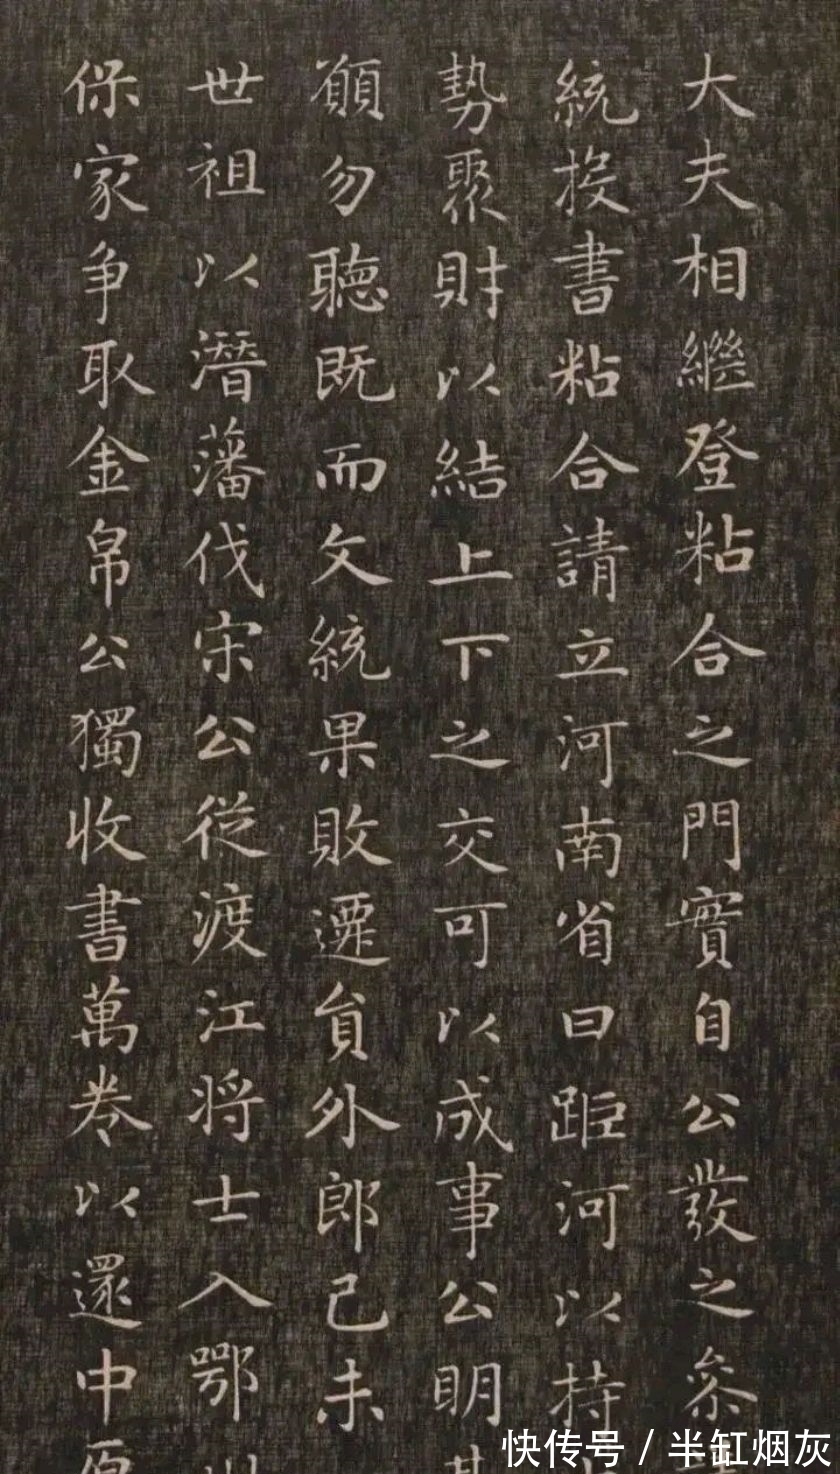 大夫相繼登粘合之門實自公發之參
統投書粘合請立河南省曰距河以持
勢聚財以結上下之交可以成事公明其
願勿聽既而文統果敗遷貟外郎己未
世祖以潛藩伐宋公從渡江将士入鄂州
保家争取金帛公獨收書萬卷以還中原
快传号 / 半缸烟灰